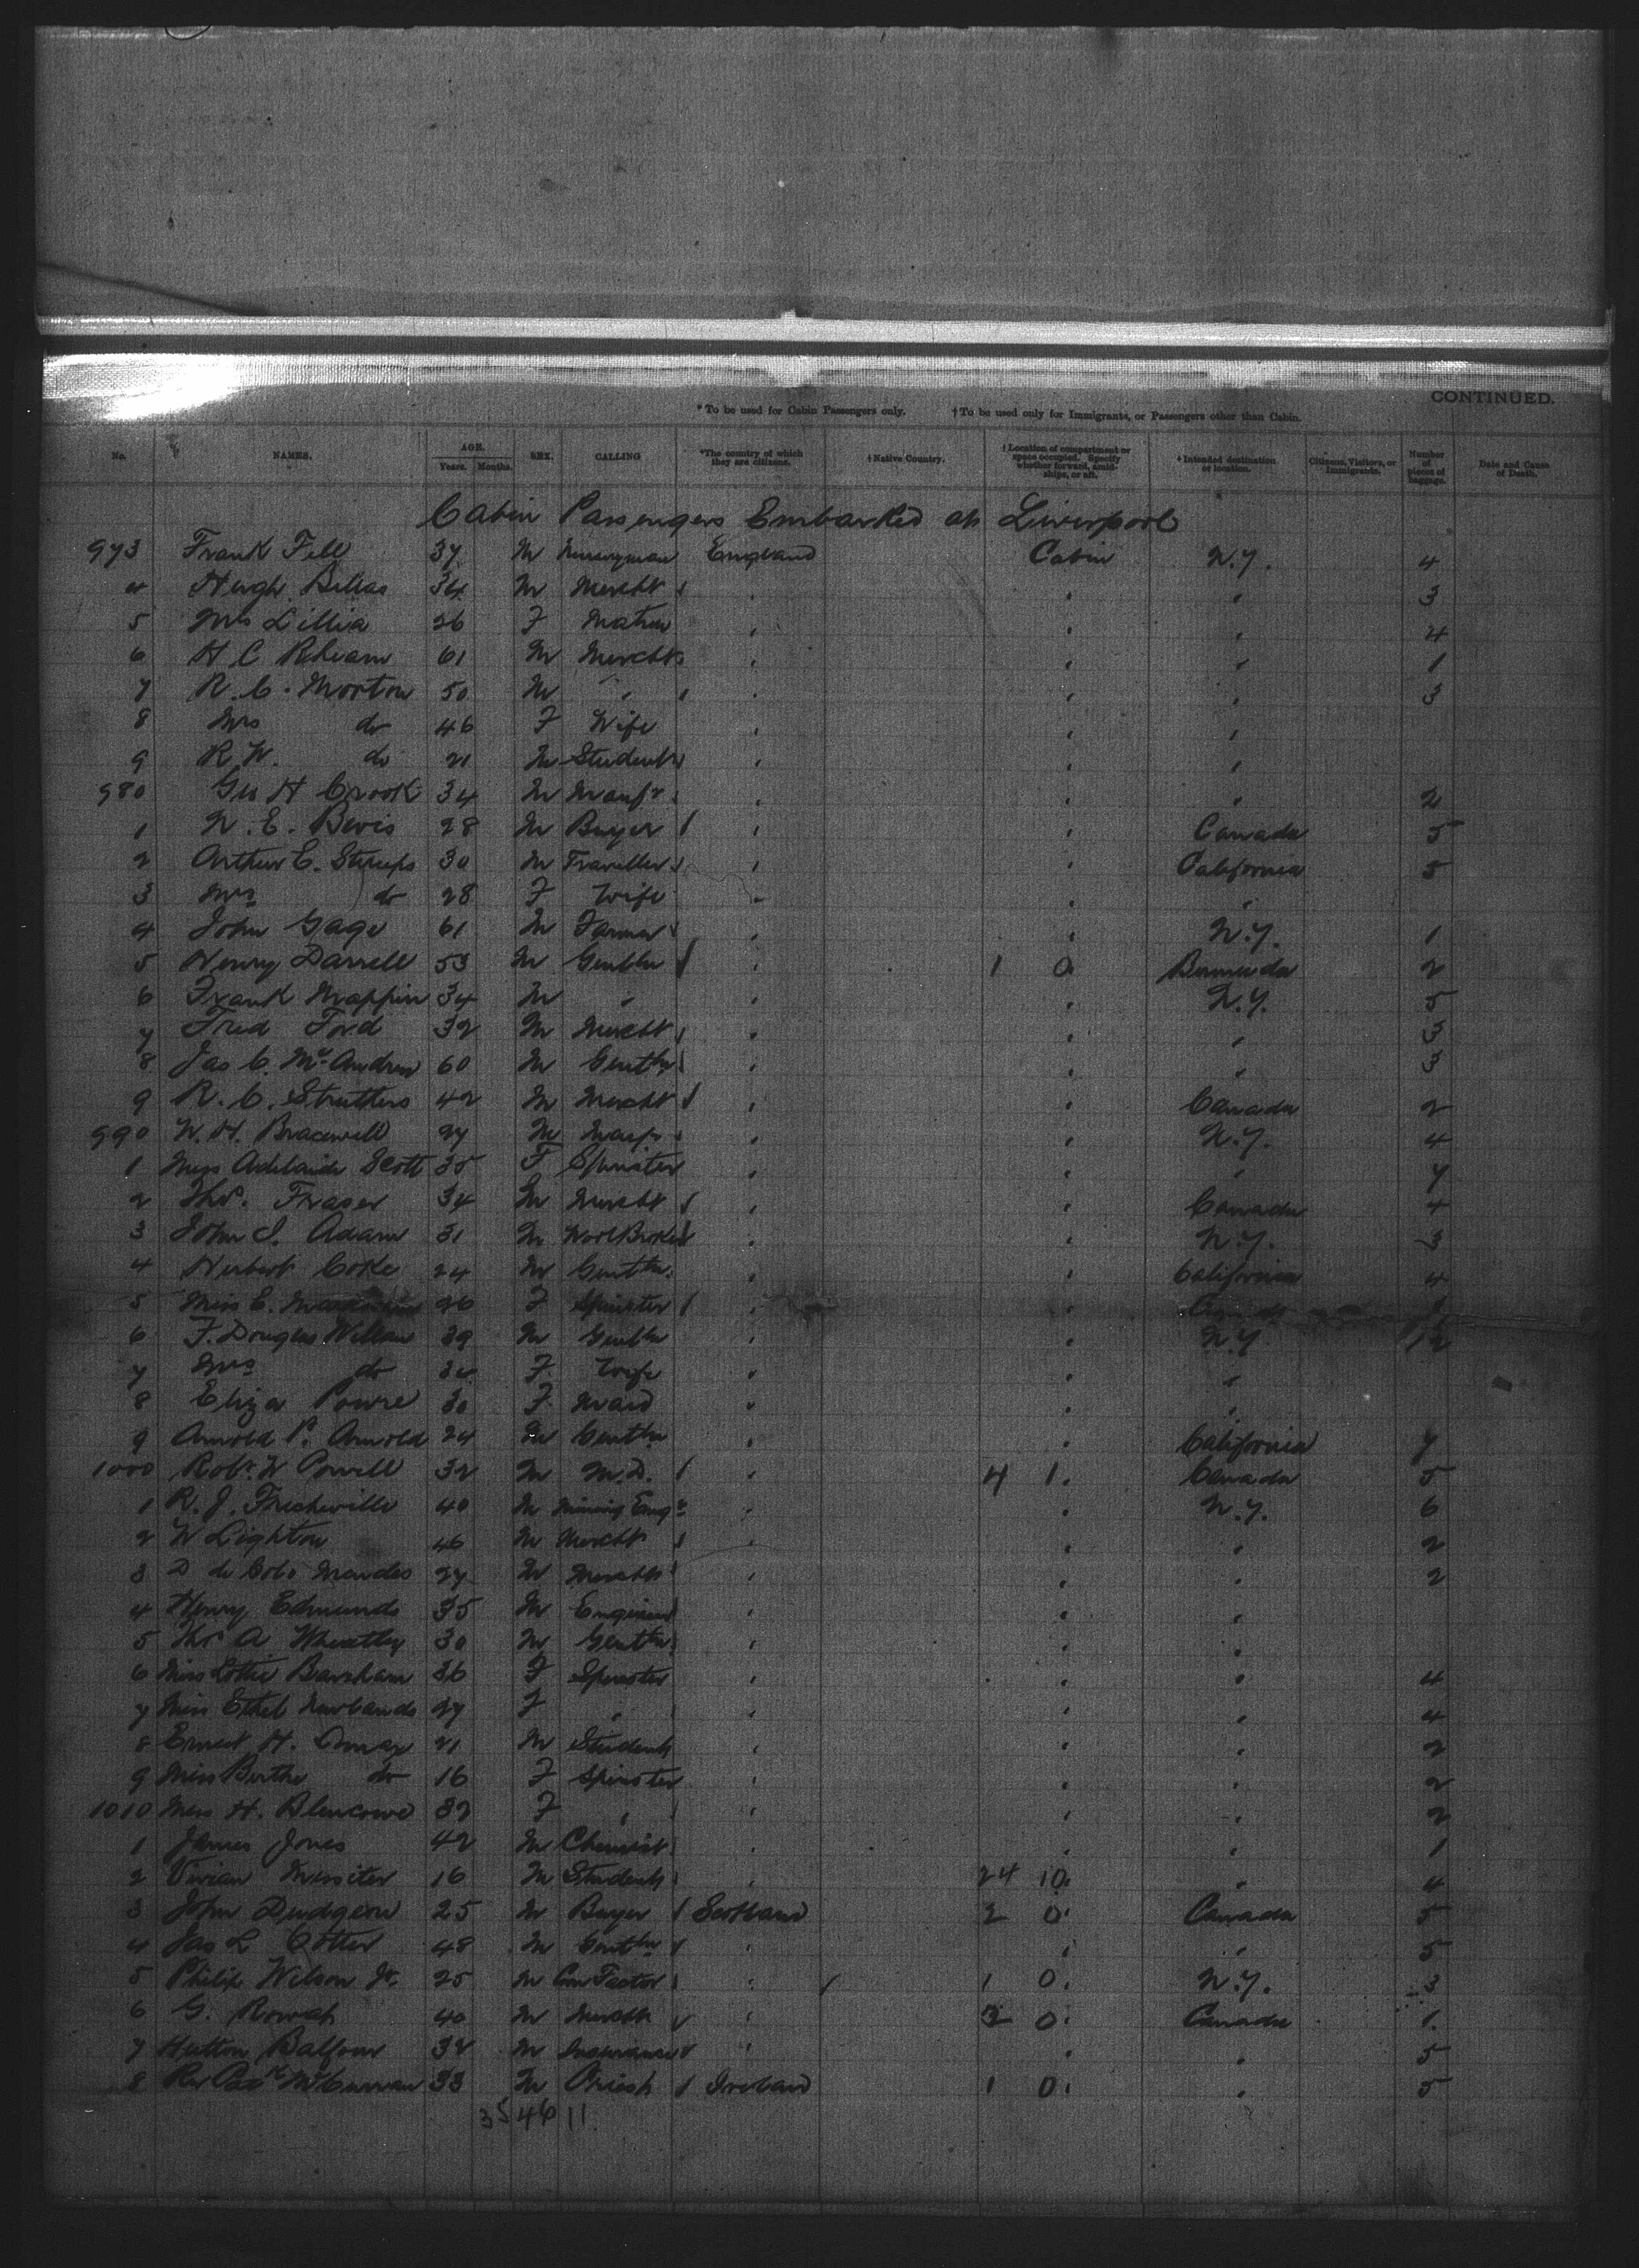 CONTINUED.
* To be used for Cabin Passengers only. † To be used only for Immigrants, or Passengers other than Cabin.
No. NAMES. AGE. Years. Months. SEX. CALLING *The country of which they are citizens. †Native Country. †Location of compartment or space occupied. Specify whether forward, amidships, or aft. †Intended destination or location. Citizens, Visitors, or Immigrants. Number of pieces of baggage. Date and Cause of Death.
Cabin Passengers Embarked at Liverpool
973 Frank Fell 37 M England Cabin N.Y. 4
4 Hugh 34 M Mercht " " " 3
5 Mrs Lillia 26 F Matron " " " 4
6 H C Rheam 61 M Mercht " " " 1
7 R. C. Morton 50 M " " " " 3
8 Mrs do 46 F Wife " " "
9 R W. do 21 M Student " " "
980 Geo H Crook 34 M Manfr " " " 2
1 N. E. Bevis 28 M Buyer " " Canada 5
2 Arthur C. 30 M Traveller " " California 5
3 Mrs do 28 F Wife " " "
4 John Gage 61 M Farmer " " N.Y. 1
5 Henry Darrell 53 M Gentln " 1 0 Bermuda 2
6 Frank Mappin 34 M " " " N.Y. 5
7 Fred Ford 32 M Mercht " " " 3
8 Jas C. McAndrew 60 M Gentln " " " 3
9 R. C. Struthers 42 M Mercht " " Canada 2
990 W. H. Bracewell 27 M Manfr " " N.Y. 4
1 Miss Adelaide Scott 35 F Spinster " " " 7
2 Thos. Fraser 34 M Mercht " " Canada 4
3 John I. Adam 31 M Wool Broker " " N.Y. 3
4 Herbert Coke 24 M Gentln. " " California 4
5 Miss E. 26 F Spinster " "
6 F. Douglas Willan 39 M Gentln " " N.Y. 12
7 Mrs do F Wife " " "
8 Eliza Powre 30 F Maid " " "
9 Arnold P. Arnold 24 M Gentln " " California 7
1000 Robt. W Powell 32 M M.D. " 4 1 Canada 5
1 R. J. Frecheville 40 M Mining Engr " " N.Y. 6
2 W Lighton 46 M Mercht " " " 2
3 D de 27 M Mercht " " " 2
4 Henry Edmunds 35 M Engineer " "
5 Thos A Wheatley 30 M Gentln " " "
6 Miss Lottie Barnham 36 F Spinster " " " 4
7 Miss Ethel Newlands 27 F " " " " 4
8 Ernest H. 21 M Student " " " 2
9 Miss Berthe do 16 F Spinster " " " 2
1010 Miss H. Blencowe 32 F " " " " 2
1 James Jones 42 M Chemist " " 1
2 Vivian Messiter 16 M Student " 24 10 " 4
3 John Dudgeon 25 M Buyer Scotland 2 0 Canada 5
4 Jas L Cotter 48 M Gentln " " " 5
5 Philip Wilson Jr. 25 M Corn Factor " 1 0 N.Y. 3
6 G. Rowat 40 M Mercht " 2 0 Canada 1
7 Hutton Balfour 32 M Insurance " " " 5
8 Rev McCurran 33 M Priest Ireland 1 0 " 5
35 46 11